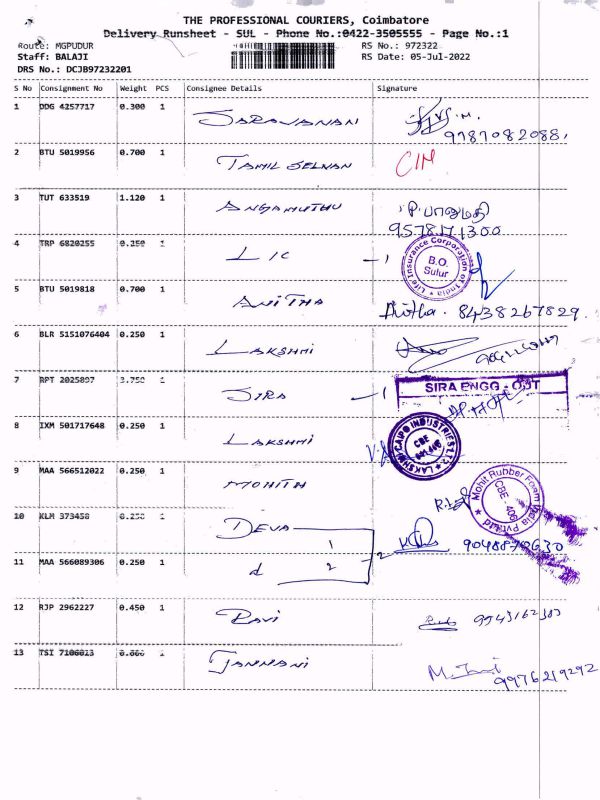 THE PROFESSIONAL COURIERS, Coimbatore
Delivery Runsheet - SUL - Phone No.:0422-3505555 - Page No.:1
Route: MGPUDUR RS No.: 972322
Staff: BALAJI RS Date: 05-Jul-2022
DRS No.: DCJB97232201
S No Consignment No Weight PCS Consignee Details Signature
1 DDG 4257717 0.300 1 SARAVANAN
9787082088
2 BTU 5019956 0.700 1 TAMIL SELVAN
3 TUT 633519 1.120 1 ANGAMUTHU P. பானுமதி
9578171300
4 TRP 6820255 0.250 1 LIC - 1
Life Insurance Corporation of India
B.O.
Sulur
5 BTU 5019818 0.700 1 ANITHA Anitha. 8438267829.
6 BLR 5151076404 0.250 1 LAKSHMI
7 RPT 2025897 3.750 1 SIRA - 1 SIRA ENGG
8 IXM 501717648 0.250 1 LAKSHMI
LAKSHMI CAIPO INDUSTRIES LTD
CBE
9 MAA 566512022 0.250 1 MOHITH
Mohit Rubber Foam India Pvt Ltd
CBE - 406
10 KLM 373458 0.250 1 DEVA 1
2
11 MAA 566089306 0.250 1 d 2
12 RJP 2962227 0.450 1 RAVI
13 TSI 7106023 1 JANNANI
9976219292